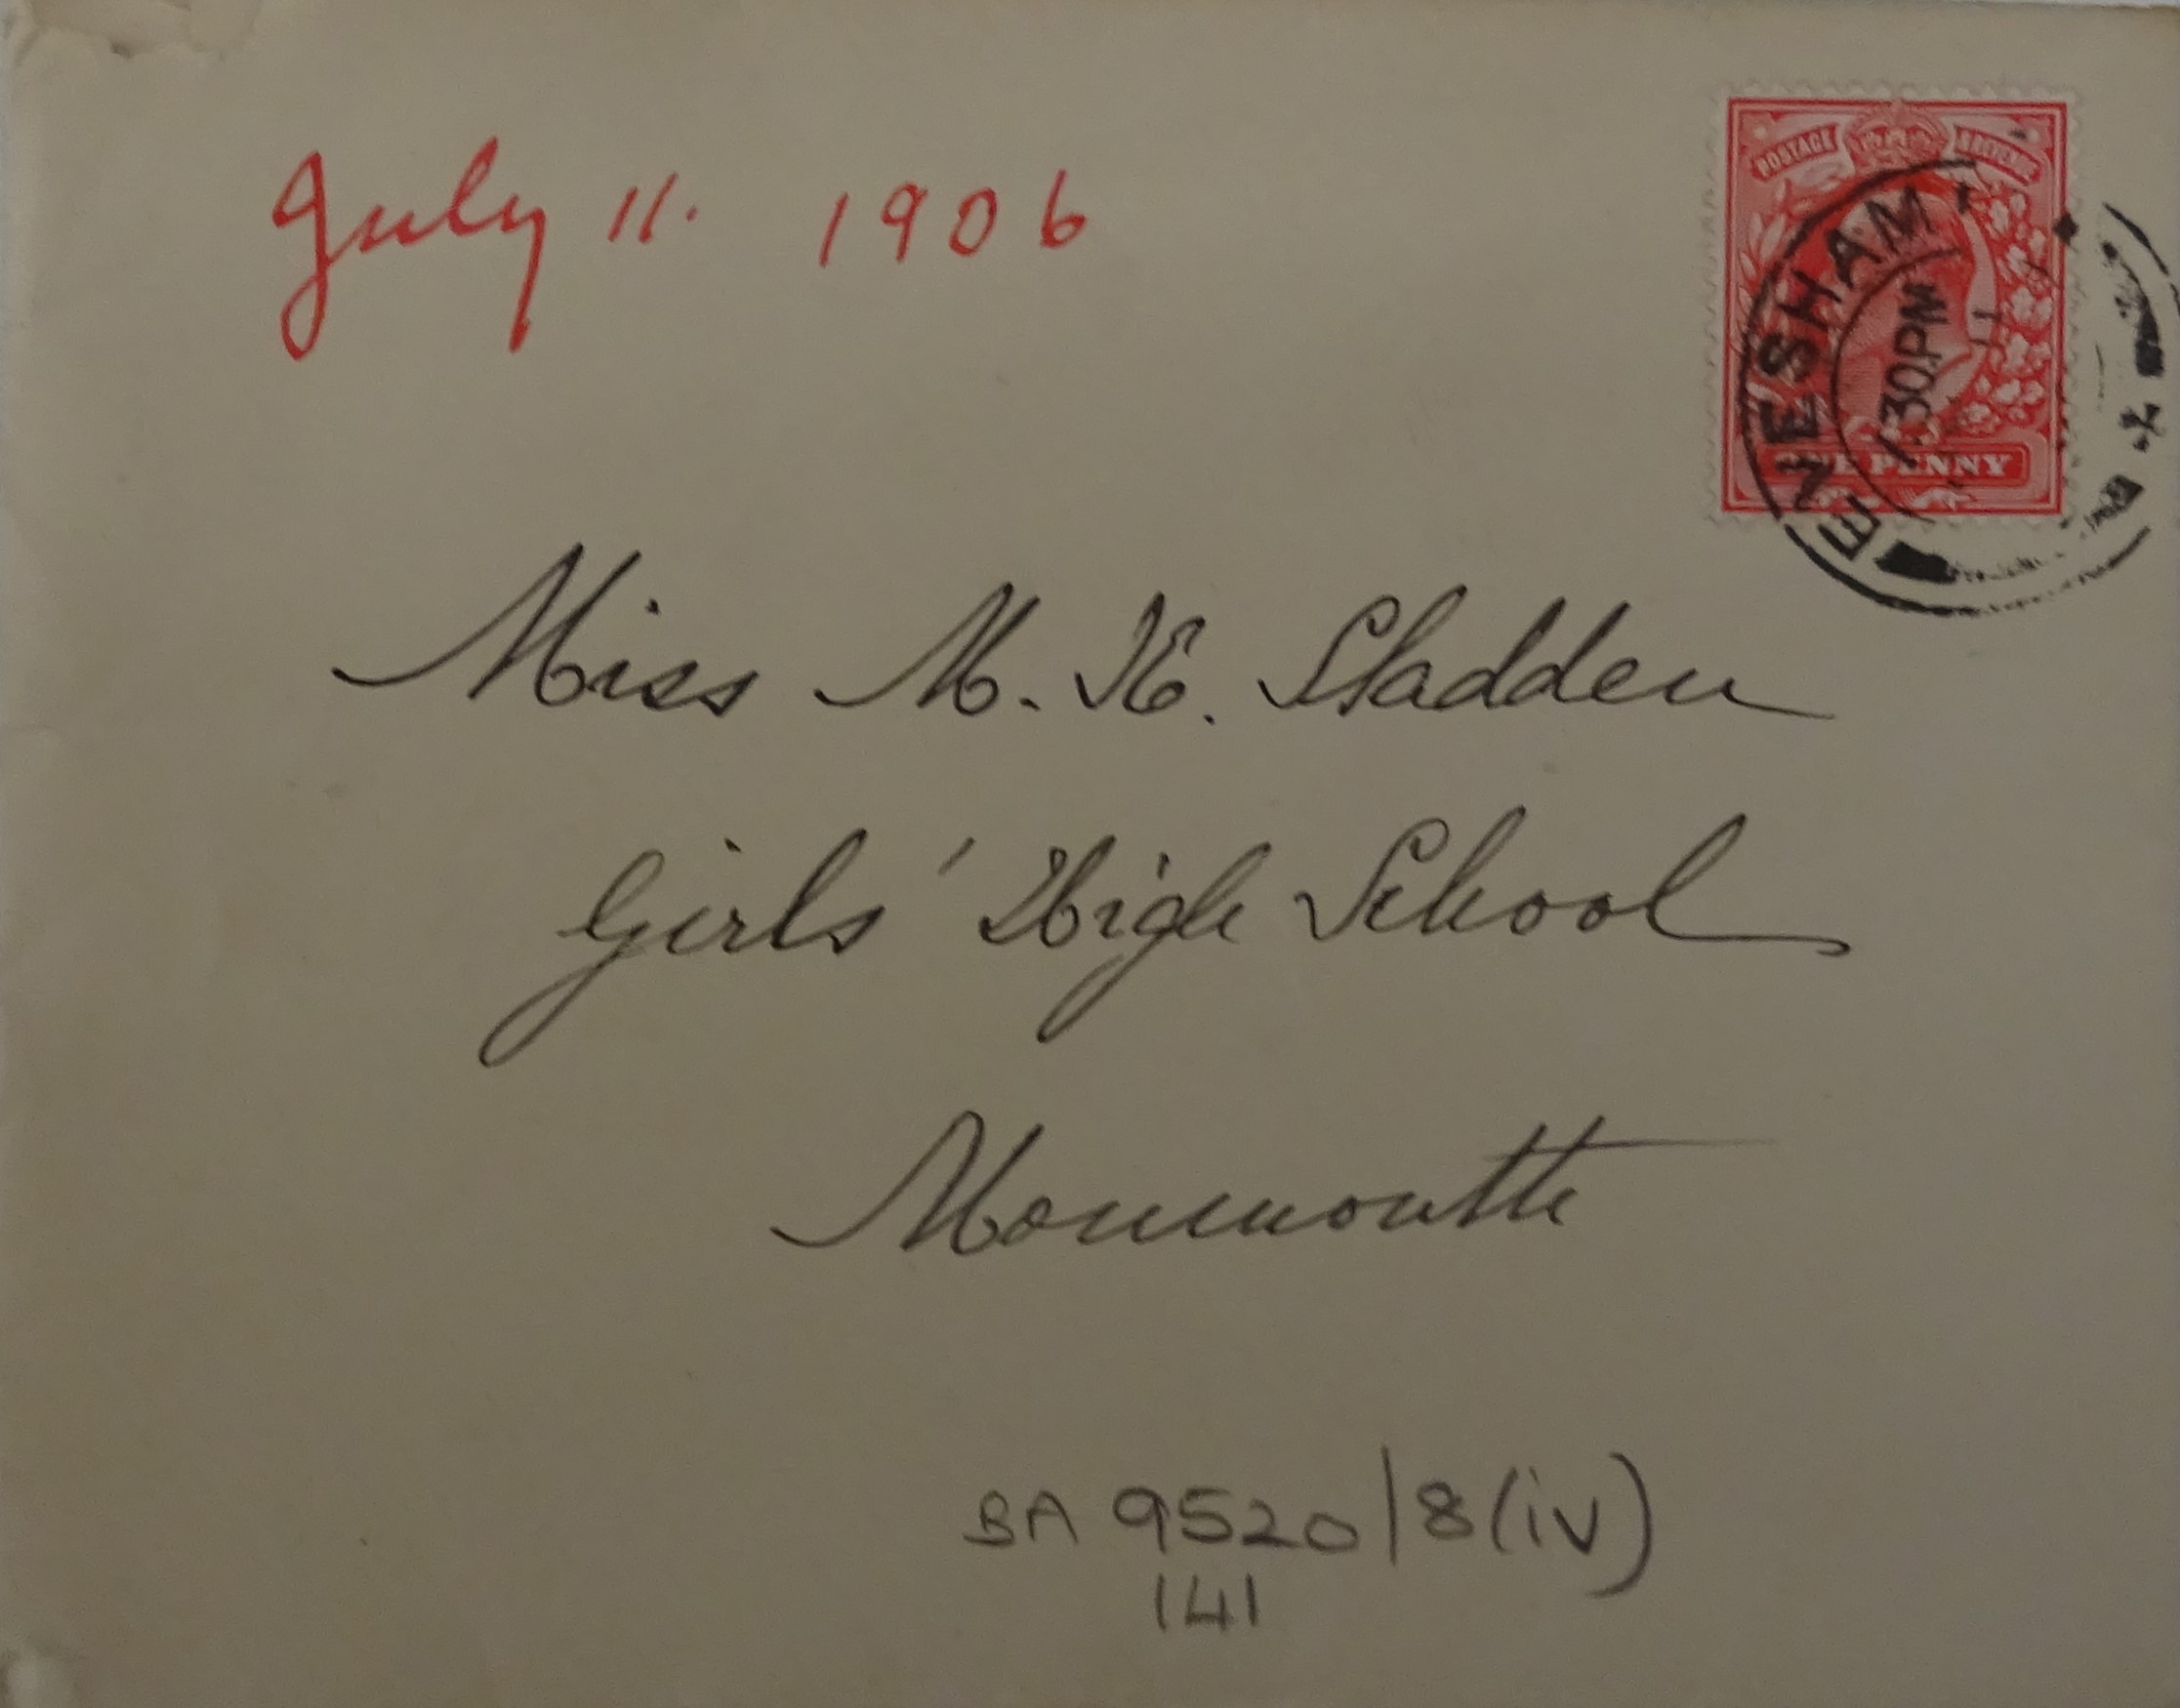 July 11. 1906
POSTAGE REVENUE
EVESHAM
30PM
11
ONE PENNY
Miss M. K. Sladden
Girls' High School
Monmouth
BA 9520/8(iv)
141